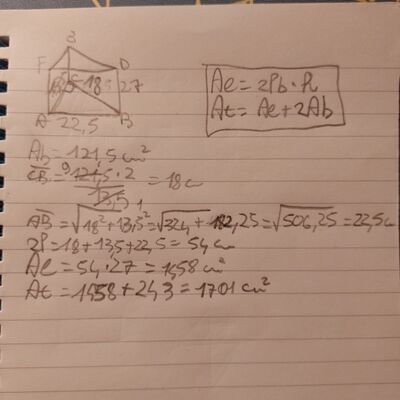 3
F D
18 27
A 22,5 B
Aℓ = 2Pb · h
At = Aℓ + 2Ab
Ab = 121,5 cm²
CB = 121,5 · 2 / 13,5 = 18 c
9 1
AB = √18² + 13,5² = √324 + 182,25 = √506,25 = 22,5 c
2P = 18 + 13,5 + 22,5 = 54 c
Aℓ = 54 · 27 = 1458 c²
At = 1458 + 243 = 1701 cm²